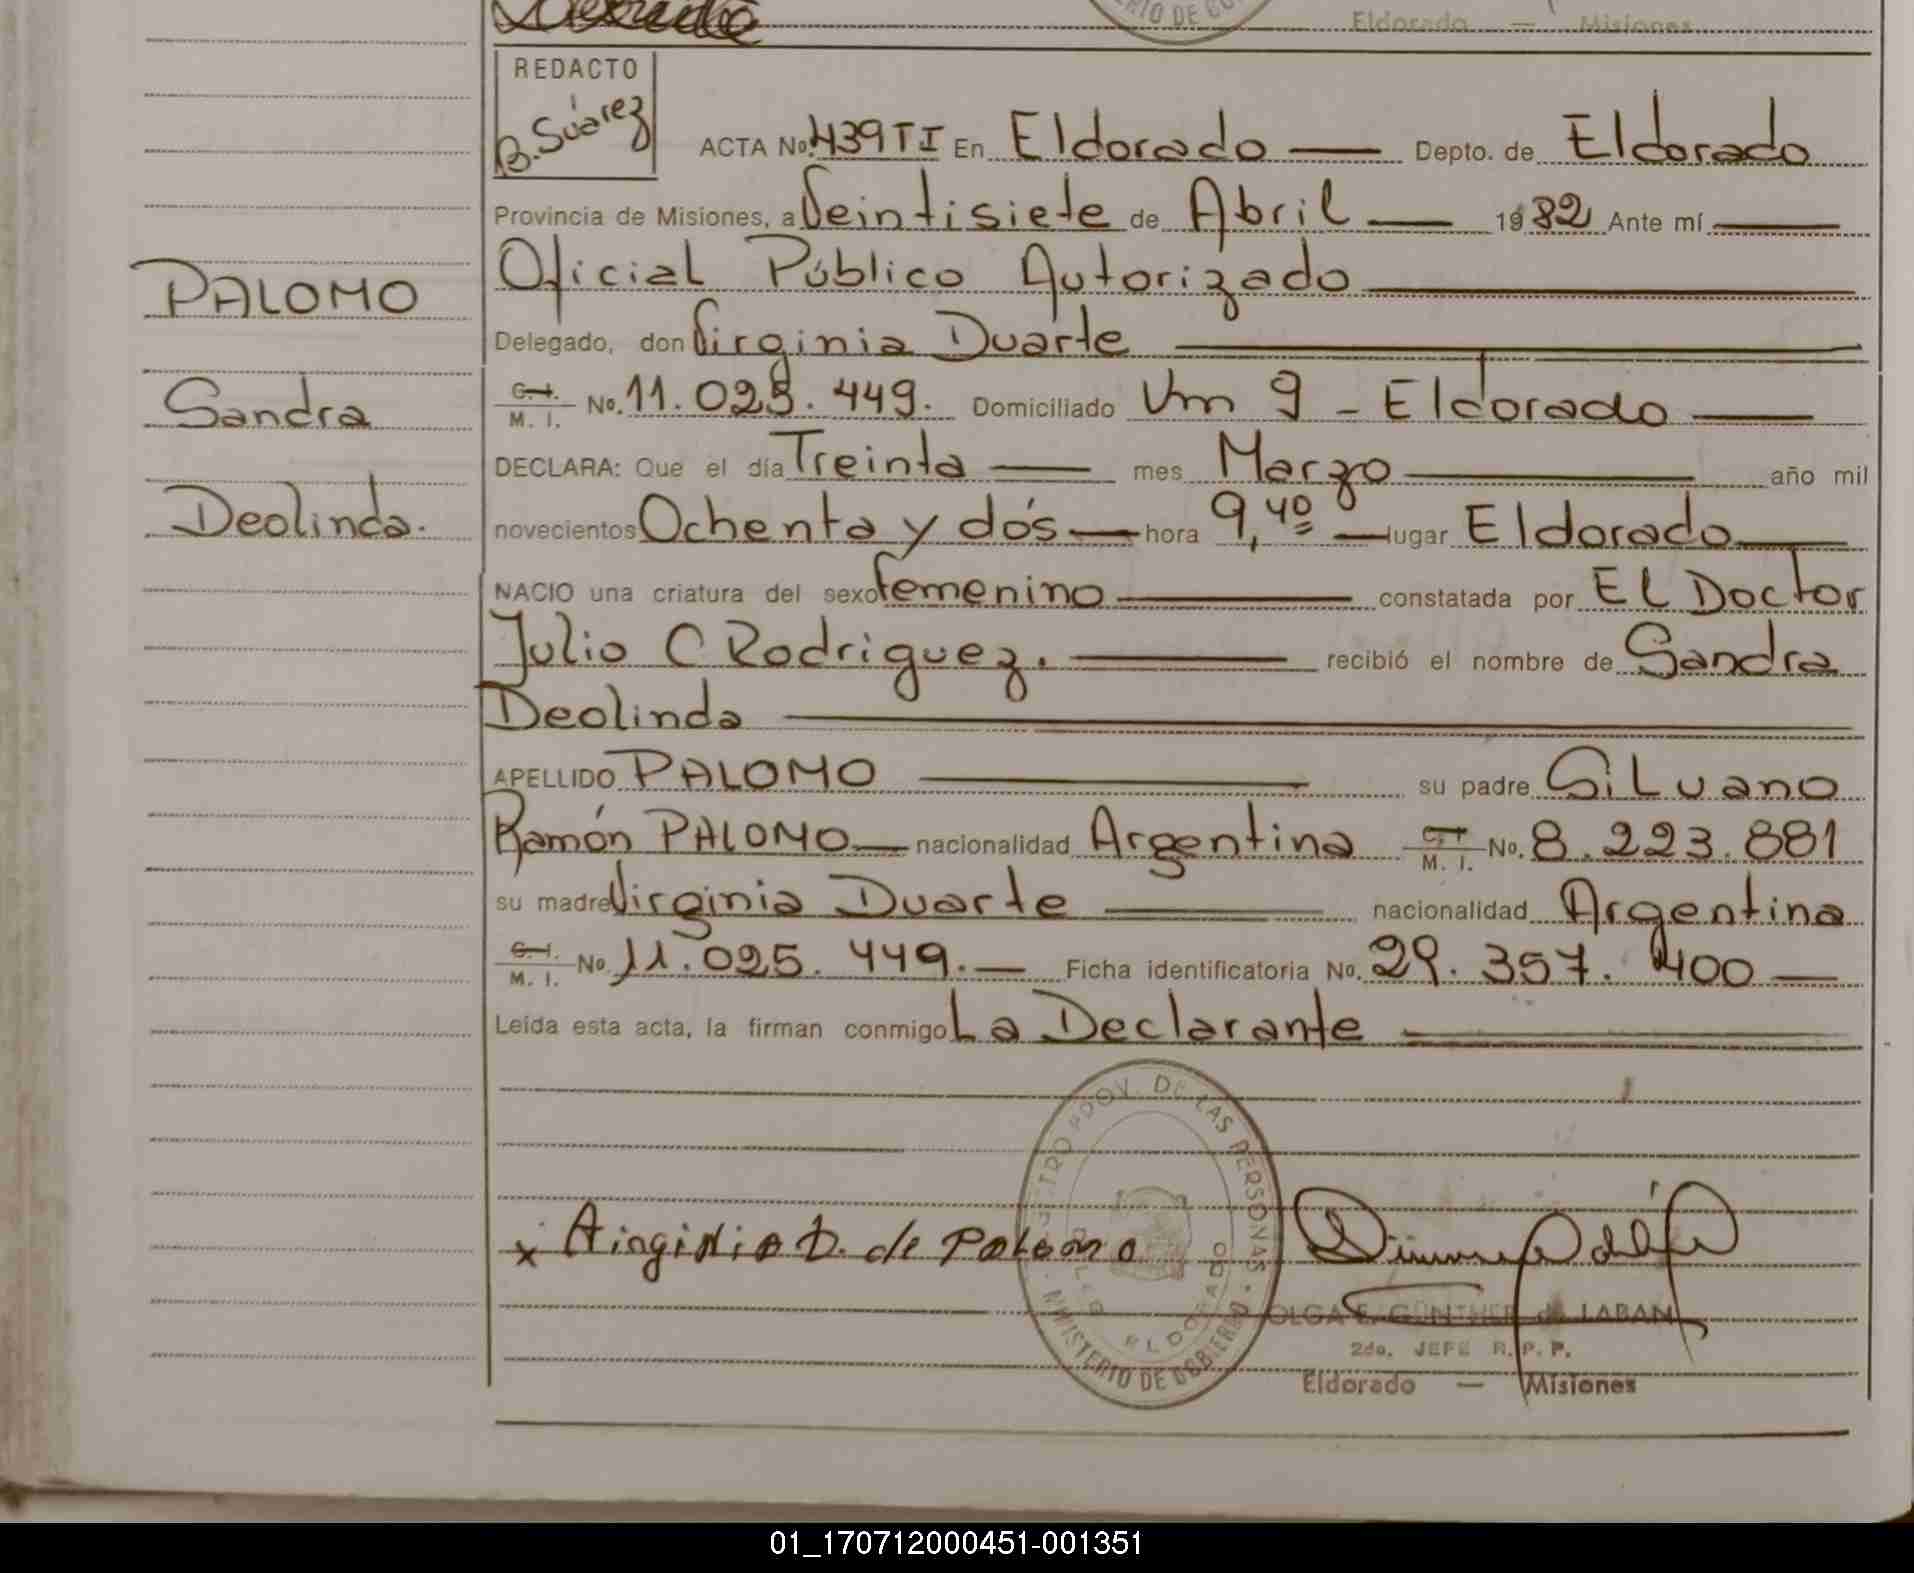 RIO DE GO
Eldorado — Misiones
REDACTO
B. Suárez
ACTA No. 439 TI En Eldorado — Depto. de Eldorado
Provincia de Misiones, a Veintisiete de Abril — 1982 Ante mí —
PALOMO
Oficial Público Autorizado —
Delegado, don Virginia Duarte —
Sandra
C. I. / M. I. No. 11.025.449. Domiciliado Km 9 - Eldorado —
DECLARA: Que el día Treinta — mes Marzo — año mil
Deolinda.
novecientos Ochenta y dós — hora 9,40 — lugar Eldorado —
NACIO una criatura del sexo femenino — constatada por EL Doctor
Julio C Rodriguez. — recibió el nombre de Sandra
Deolinda —
APELLIDO PALOMO — su padre SiLvano
Ramón PALOMO — nacionalidad Argentina C. I. / M. I. No. 8.223.881
su madre Virginia Duarte — nacionalidad Argentina
C. I. / M. I. No. 11.025.449. — Ficha identificatoria No. 29.357.400 —
Leída esta acta, la firman conmigo La Declarante —
REGISTRO PROV. DE LAS PERSONAS · MINISTERIO DE GOBIERNO ·
ELDORADO
x D. de Palomo
OLGA E. GÜNTHER de LABAN
2do. JEFE R. P. P.
Eldorado — Misiones
01_170712000451-001351